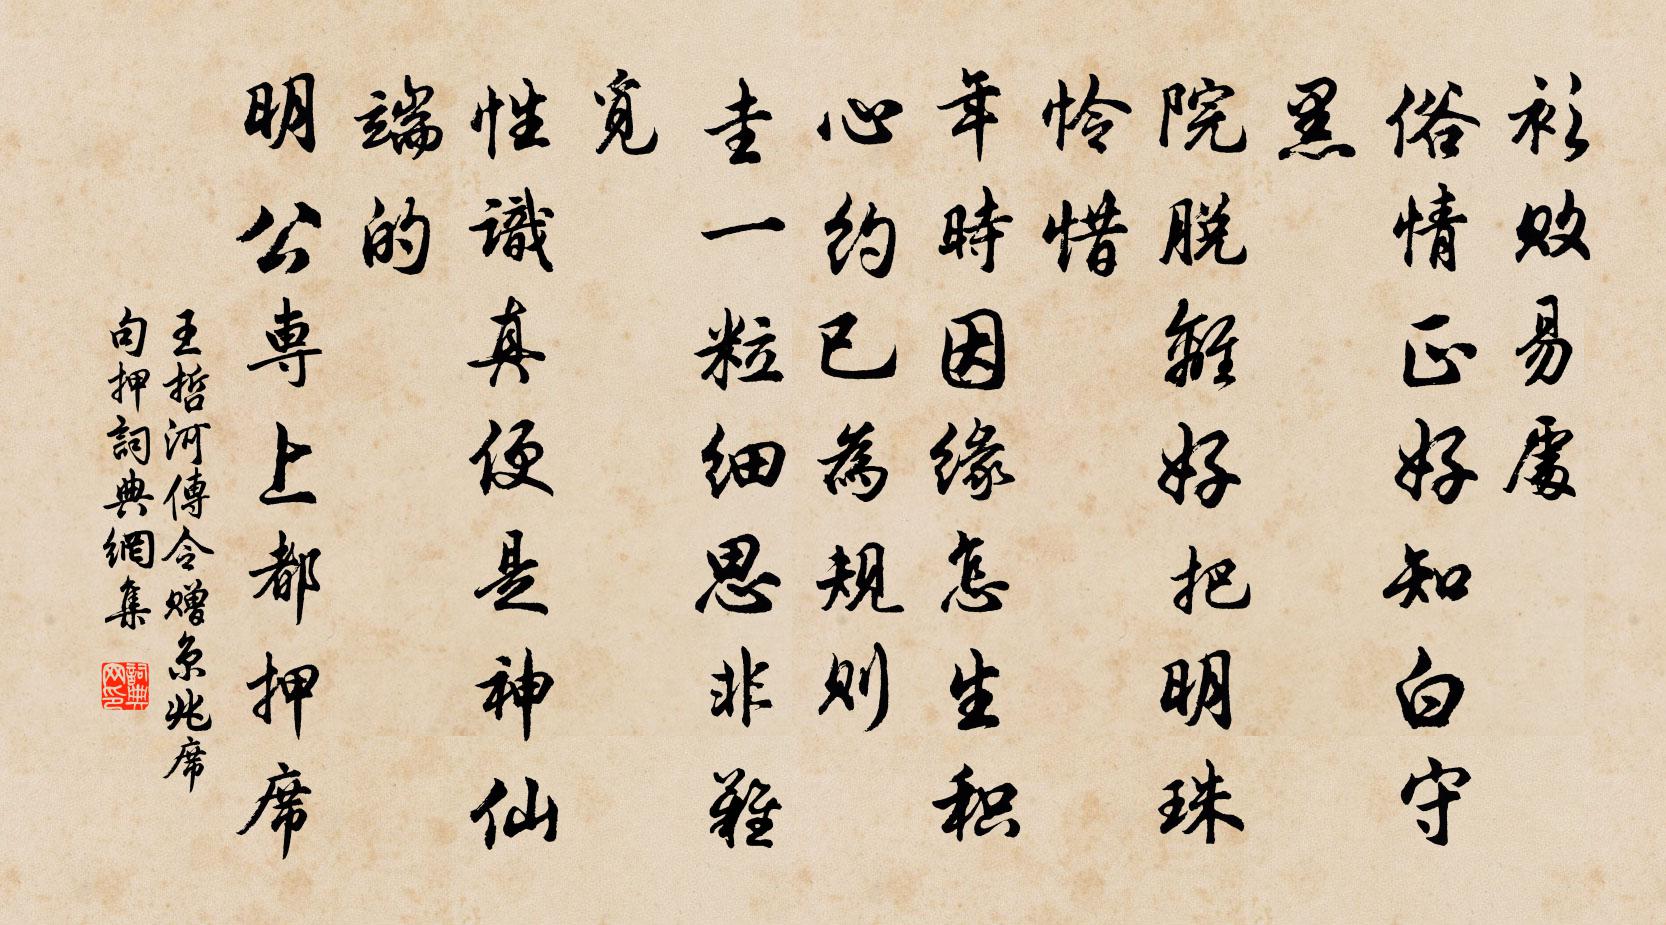 衫败易處
俗情正好知白守
黑
院脱離好把明珠
怜惜
年時因缘怎生积
心约已為規则
圭一粒细思非難
覓
性識真便是神仙
端的
明公専上都押席
王哲河傳令赠京兆席
句押詞典網集
詞典网印